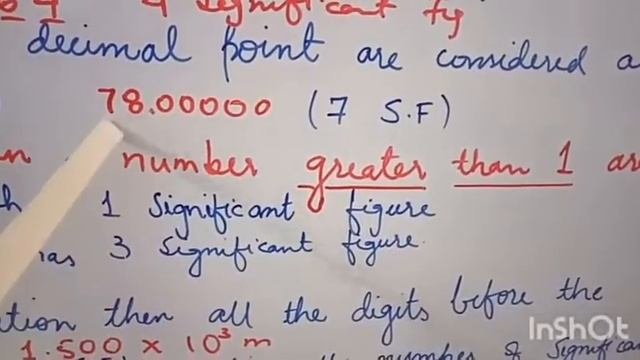 4 significant fig
decimal point are considered a
78.00000 (7 S.F)
n number greater than 1 are
h 1 Significant figure
has 3 significant figure.
ation then all the digits before the
1.500 × 10³ m number of Significa
InShOt